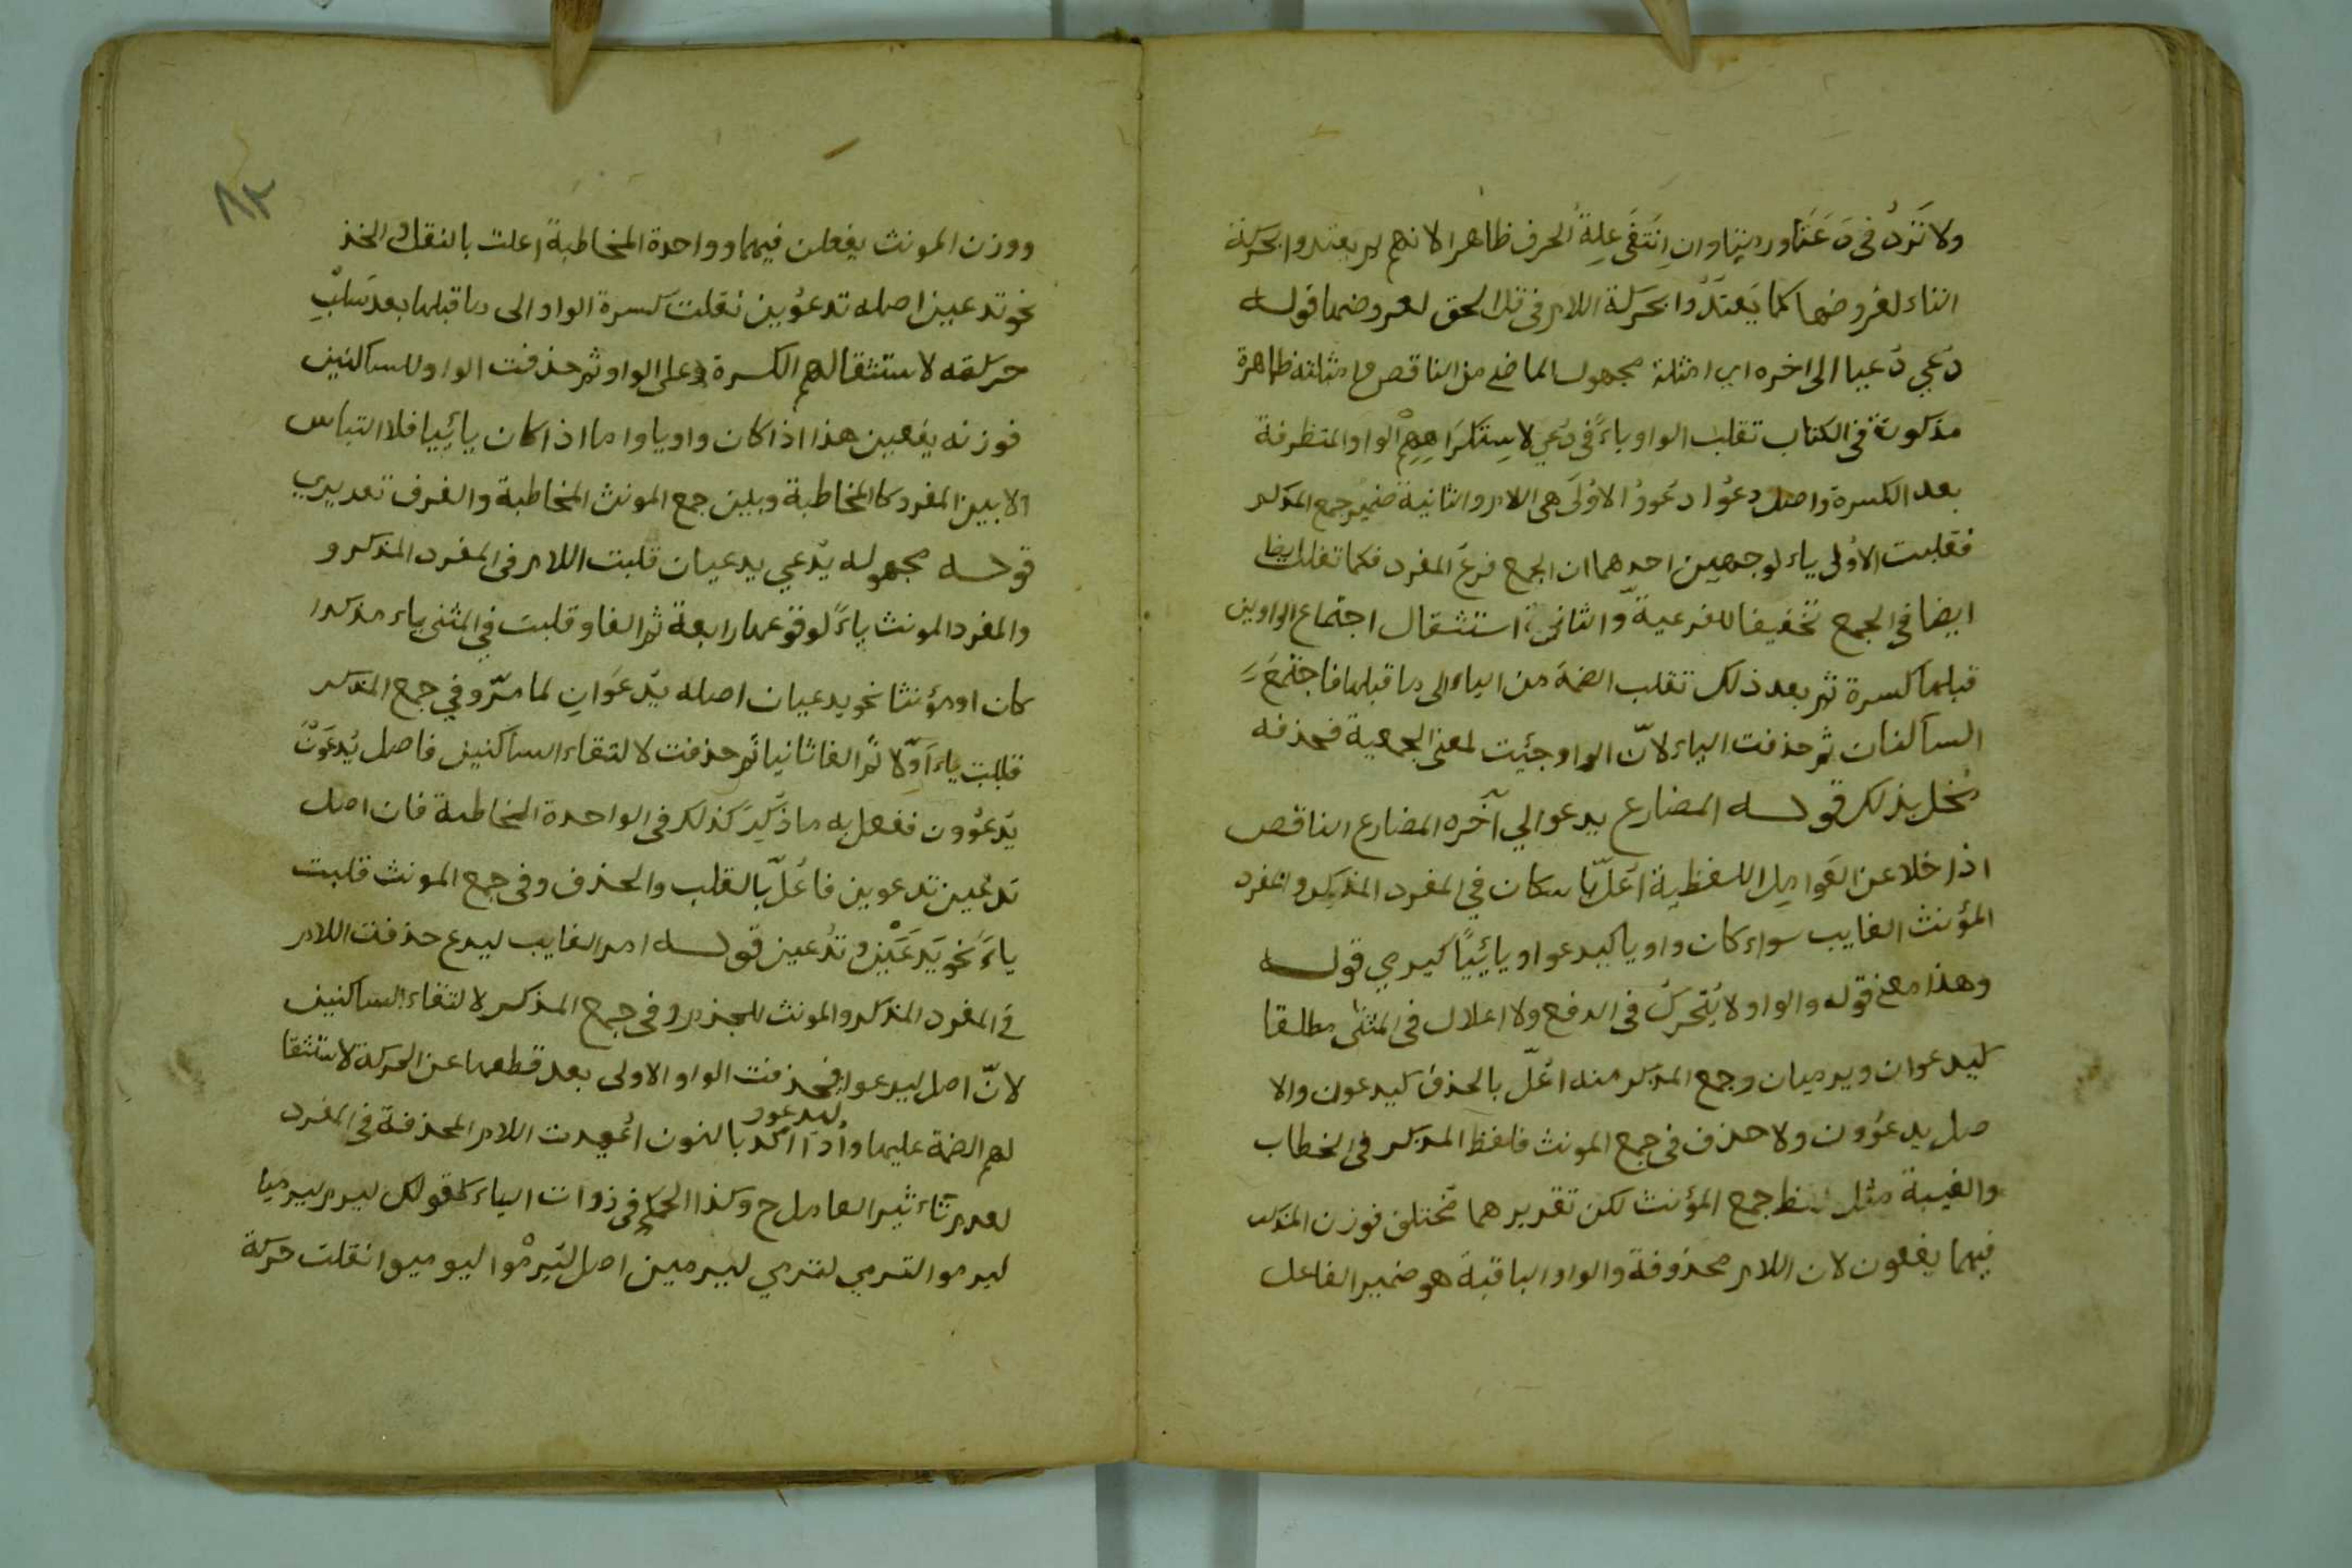 ولا تَرُدُّ فى دَعَتَا ورمتا وان اِنتَفَى عِلةُ الحرف ظاهرا لانهم لم يعتدوا بحركة
التاء لعُروضها كما يَعتَدُّوا بحركة اللام فى قل الحق لعروضها قوله
دُعِي دُعِيا الى اخره اى امثلة مجهول الماضى من الناقص وامثلته ظاهرة
مذكورة فى الكتاب تقلب الواو ياءً فى دُعي لاِستكرَاهِهِمْ الواو المتطرفة
بعد الكسرة واصل دعُوا دُعِوُو الاوُلَى هى اللام والثانية ضمير جمع المذكر
فقلبت الاوُلى ياء لوجهين احدهما ان الجمع فرعُ المفرد فكما تقلب ايضا
ايضا فى الجمع تخفيفا للفرعية والثانى استثقال اجتماع الواوين
قبلها كسرة ثم بعد ذلك تقلب الضمة من الياء الى ما قبلها فاجتمَعَ
الساكنان ثم حذفت الياء لانّ الواو جئيت لمعنى الجمعية فحذفه
مُخل بذلك قوله المضارع يدعو الي آخره المضارع الناقص
اذا خلا عن العَوامِلِ اللفظية اُعَلّ باسكان في المفرد المذكر والمفرد
المؤنث الغايب سواء كان واويا كيدعو او يائِيًا كيرمي قوله
وهذا معنى قوله والواو لا يُتحرك فى الرفع ولا اعلال فى المثنى مطلقا
كيدعوان ويرميان وجمع المذكر منه اعُلّ بالحذف كيدعون والا
صل يدعوُون ولا حذف فى جمع المونث فلفظ المذكر فى الخطاب
والغيبة مثل لفظ جمع المؤنث لكن تقديرهما مختلف فوزن المذكر
فيهما يفعون لان اللام محذوفة والواو الباقية هو ضمير الفاعل
٨٢
ووزن المونث يفعلن فيهما وواحدة المخاطبة اعلت بالنقل والحذ
نحو تدعين اصله تدعوُين نقلت كسرة الواو الى ما قبلها بعد سَلْبِ
حركته لاستثقالهم الكسرة على الواو ثم حذفت الواو للساكنين
فوزنه يفعين هذا اذا كان واويا واما اذا كان يائِيا فلا التباس
الا بين المفرد كالمخاطبة وبين جمع المونث المخاطبة والفرق تقديري
قوله مجهوله يُدعي يدعيان قلبت اللام فى المفرد المذكر و
والمفرد المونث ياءً لوقوعها رابعة ثم الفا وقلبت في المثنى ياء مذكرا
كان او مؤنثا نحو يدعيان اصله يُدعَوَانِ لما مرّ وفي جمع المذكر
قلبت ياءً اَوّلا ثم الفا ثانيا ثم حذفت لالتقاء الساكنين فاصل يُدعَوْنَ
يُدعوُون ففعل به ما ذُكِرَ كذلك فى الواحدة المخاطبة فان اصل
تدعَين تدعوين فاعُلّ بالقلب والحذف وفى جمع المونث قلبت
ياءً نحو يُدعَيْن وتدُعين قوله امر الغايب ليدع حذفت اللام
فى المفرد المذكر والمونث للجزم وفى جمع المذكر لالتقاء الساكنين
لانّ اصل ليدعوا فحذفت الواو الاولى بعد قطعها عن الحركة لاستثقا
ليدعوو
لهم الضمة عليها واذا اكد بالنون اُعُيدت اللام المحذفة فى المفرد
لعدم تاءثير العامل ح وكذا الحكم فى ذوات الياء كقولك ليرم ليرميا
ليرموا لترمي لترمي ليرمين اصل لِيَرمُوا ليوميوا نقلت حركة